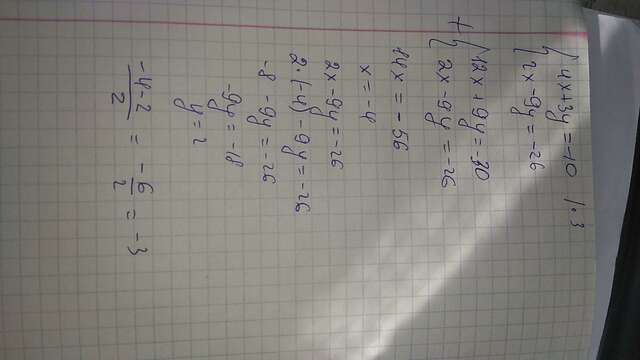 { 4x+3y=-10 |·3
{ 2x-9y=-26
+ { 12x+9y=-30
{ 2x-9y=-26
14x=-56
x=-4
2x-9y=-26
2·(-4)-9y=-26
-8-9y=-26
-9y=-18
y=2
-4-2/2 = -6/2 = -3